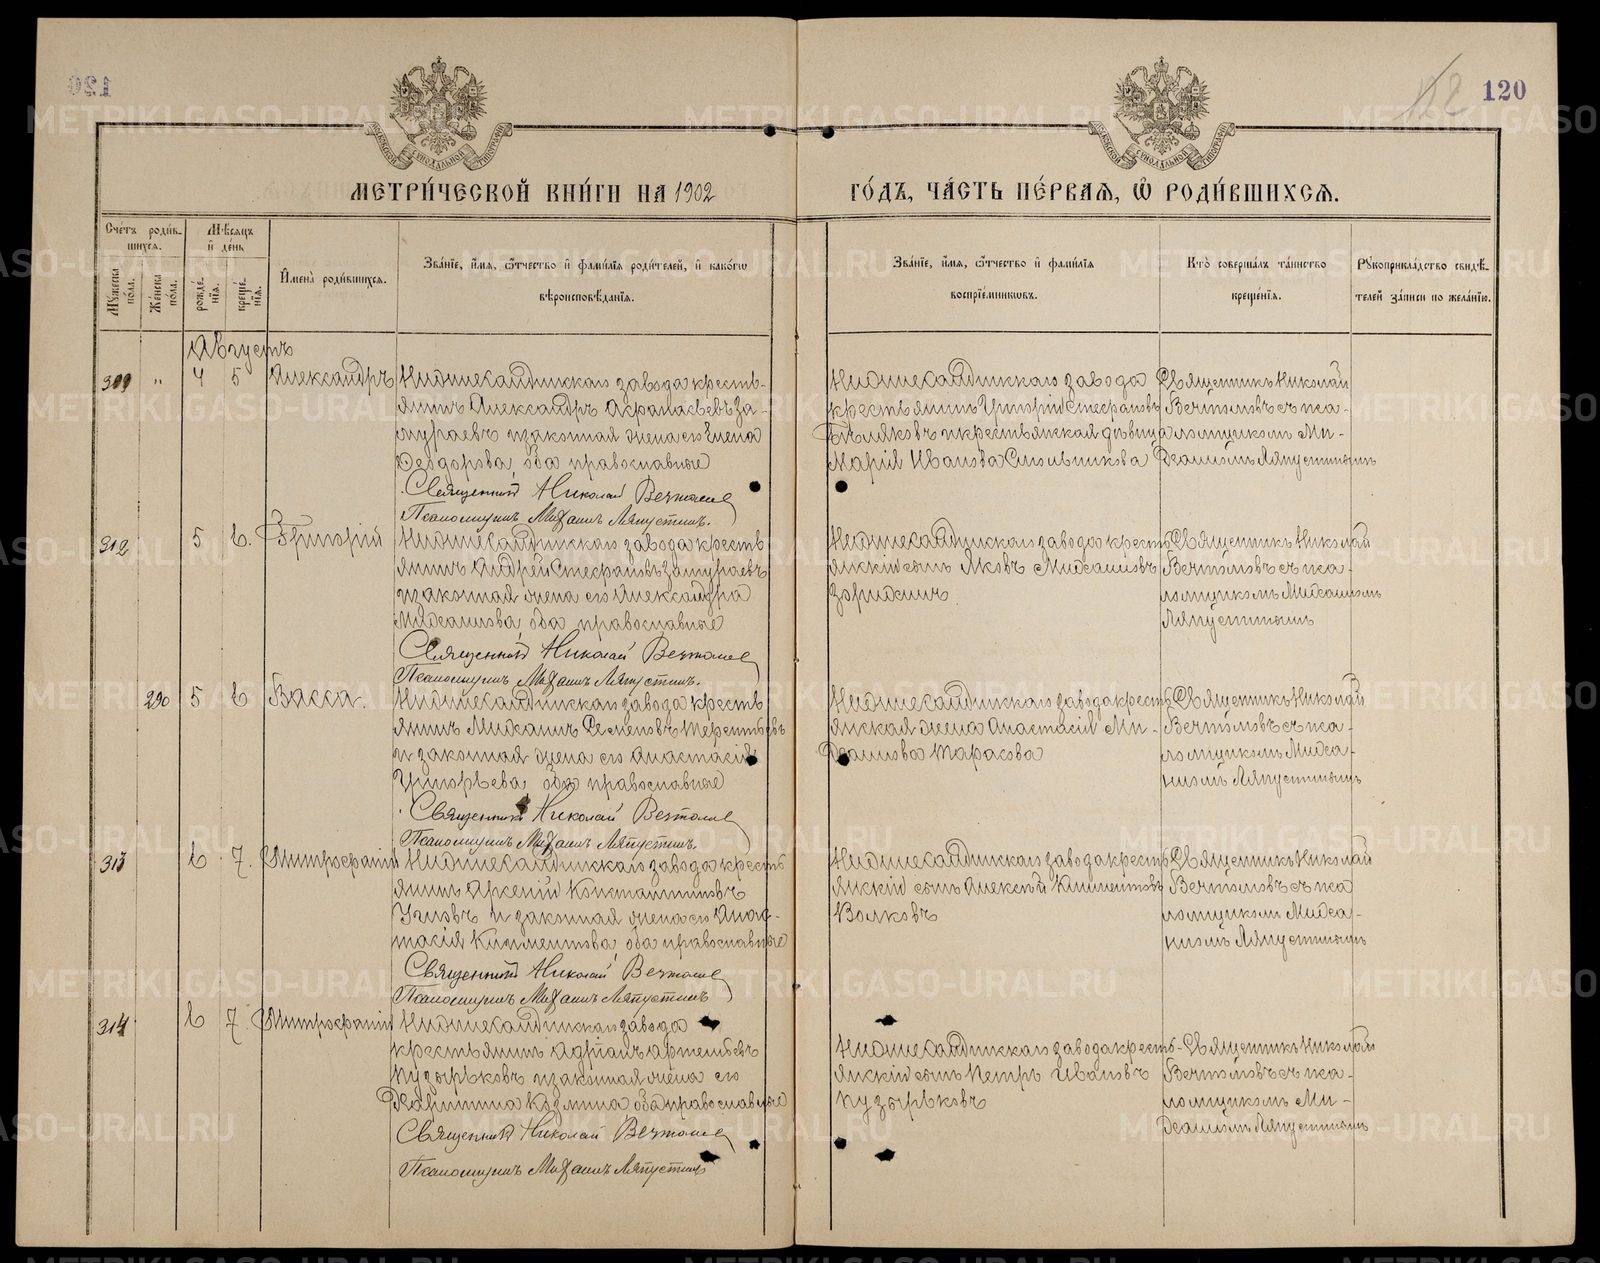 120
МЕТРИ́ЧЕСКОЙ КНИ́ГИ НА 1902
ГО́ДЪ, ЧА́СТЬ ПЕ́РВАѦ, Ѡ҆ РОДИ́ВШИХСѦ.
Сче́тъ роди́в-
шихсѧ.
Мꙋ́жеска по́ла.
Же́нска по́ла.
Мѣ́сѧцъ
и҆ де́нь
рожде́нїѧ.
креще́нїѧ.
И҆мена̀ роди́вшихсѧ.
Зва́нїе, и҆́мѧ, ѻ҆́тчество и҆ фами́лїѧ роди́телей, и҆ како́гѡ
вѣроисповѣ́данїѧ.
Зва́нїе, и҆́мѧ, ѻ҆́тчество и҆ фами́лїѧ
воспрїе́мникѡвъ.
Кто̀ соверша́лъ та́инство
креще́нїѧ.
Рꙋкоприкла́дство свидѣ́-
телей за́писи по жела́нїю.
Августъ
„ 4 5 Александръ
Нижнесалдинскаго завода кресть-
янинъ Александръ Афанасьевъ За-
мураевъ и законная жена его Елена
Феодорова, оба православные
Священник Николай
Псаломщикъ Михаилъ Ляпустинъ.
Нижнесалдинскаго завода
крестьянинъ Григорій Стефановъ
Бѣляковъ и крестьянская дѣвица
Марія Иванова
Священникъ Николай
съ пса-
ломщикомъ Ми-
хаиломъ Ляпустинымъ
312 5 6. Григорій
Нижнесалдинскаго завода кресть
янинъ Андрей Стефановъ Замураевъ
и законная жена его Александра
Михаилова оба православные
Священник Николай
Псаломщикъ Михаилъ Ляпустинъ.
Нижнесалдинскаго завода кресть
янскій сынъ Яковъ Михаиловъ
Зорихинъ
Священникъ Николай
съ пса-
ломщикомъ Михаиломъ
Ляпустинымъ
290 5 6 Васса.
Нижнесалдинскаго завода кресть
янинъ Михаилъ Семеновъ Терентьевъ
и законная жена его Анастасія
Григорьева оба православные
Священник Николай
Псаломщикъ Михаилъ Ляпустинъ
Нижнесалдинскаго завода кресть
янская жена Анастасія Ми-
хаилова Тарасова
Священникъ Николай
съ пса-
ломщикомъ Михаи-
ломъ Ляпустинымъ
313 6 7. Митрофаній
Нижнесалдинскаго завода кресть
янинъ Арсеній Константиновъ
и законная жена его Анас-
тасія Климентова, оба православные
Священник Николай
Псаломщикъ Михаилъ Ляпустинъ
Нижнесалдинскаго завода кресть
янскій сынъ Алексѣй Климентовъ
Волковъ
Священникъ Николай
съ пса
ломщикомъ Михаи-
ломъ Ляпустинымъ
314 6 7. Митрофаній
Нижнесалдинскаго завода
крестьянинъ Адріанъ Артемьевъ
Пузырьковъ и законная жена его
Харитина Козмина оба православные
Священник Николай
Псаломщикъ Михаилъ Ляпустинъ
Нижнесалдинскаго завода кресть-
янскій сынъ Петръ Ивановъ
Пузырьковъ
Священникъ Николай
съ пса-
ломщикомъ Ми-
хаиломъ Ляпустинымъ
METRIKI.GASO-URAL.RU